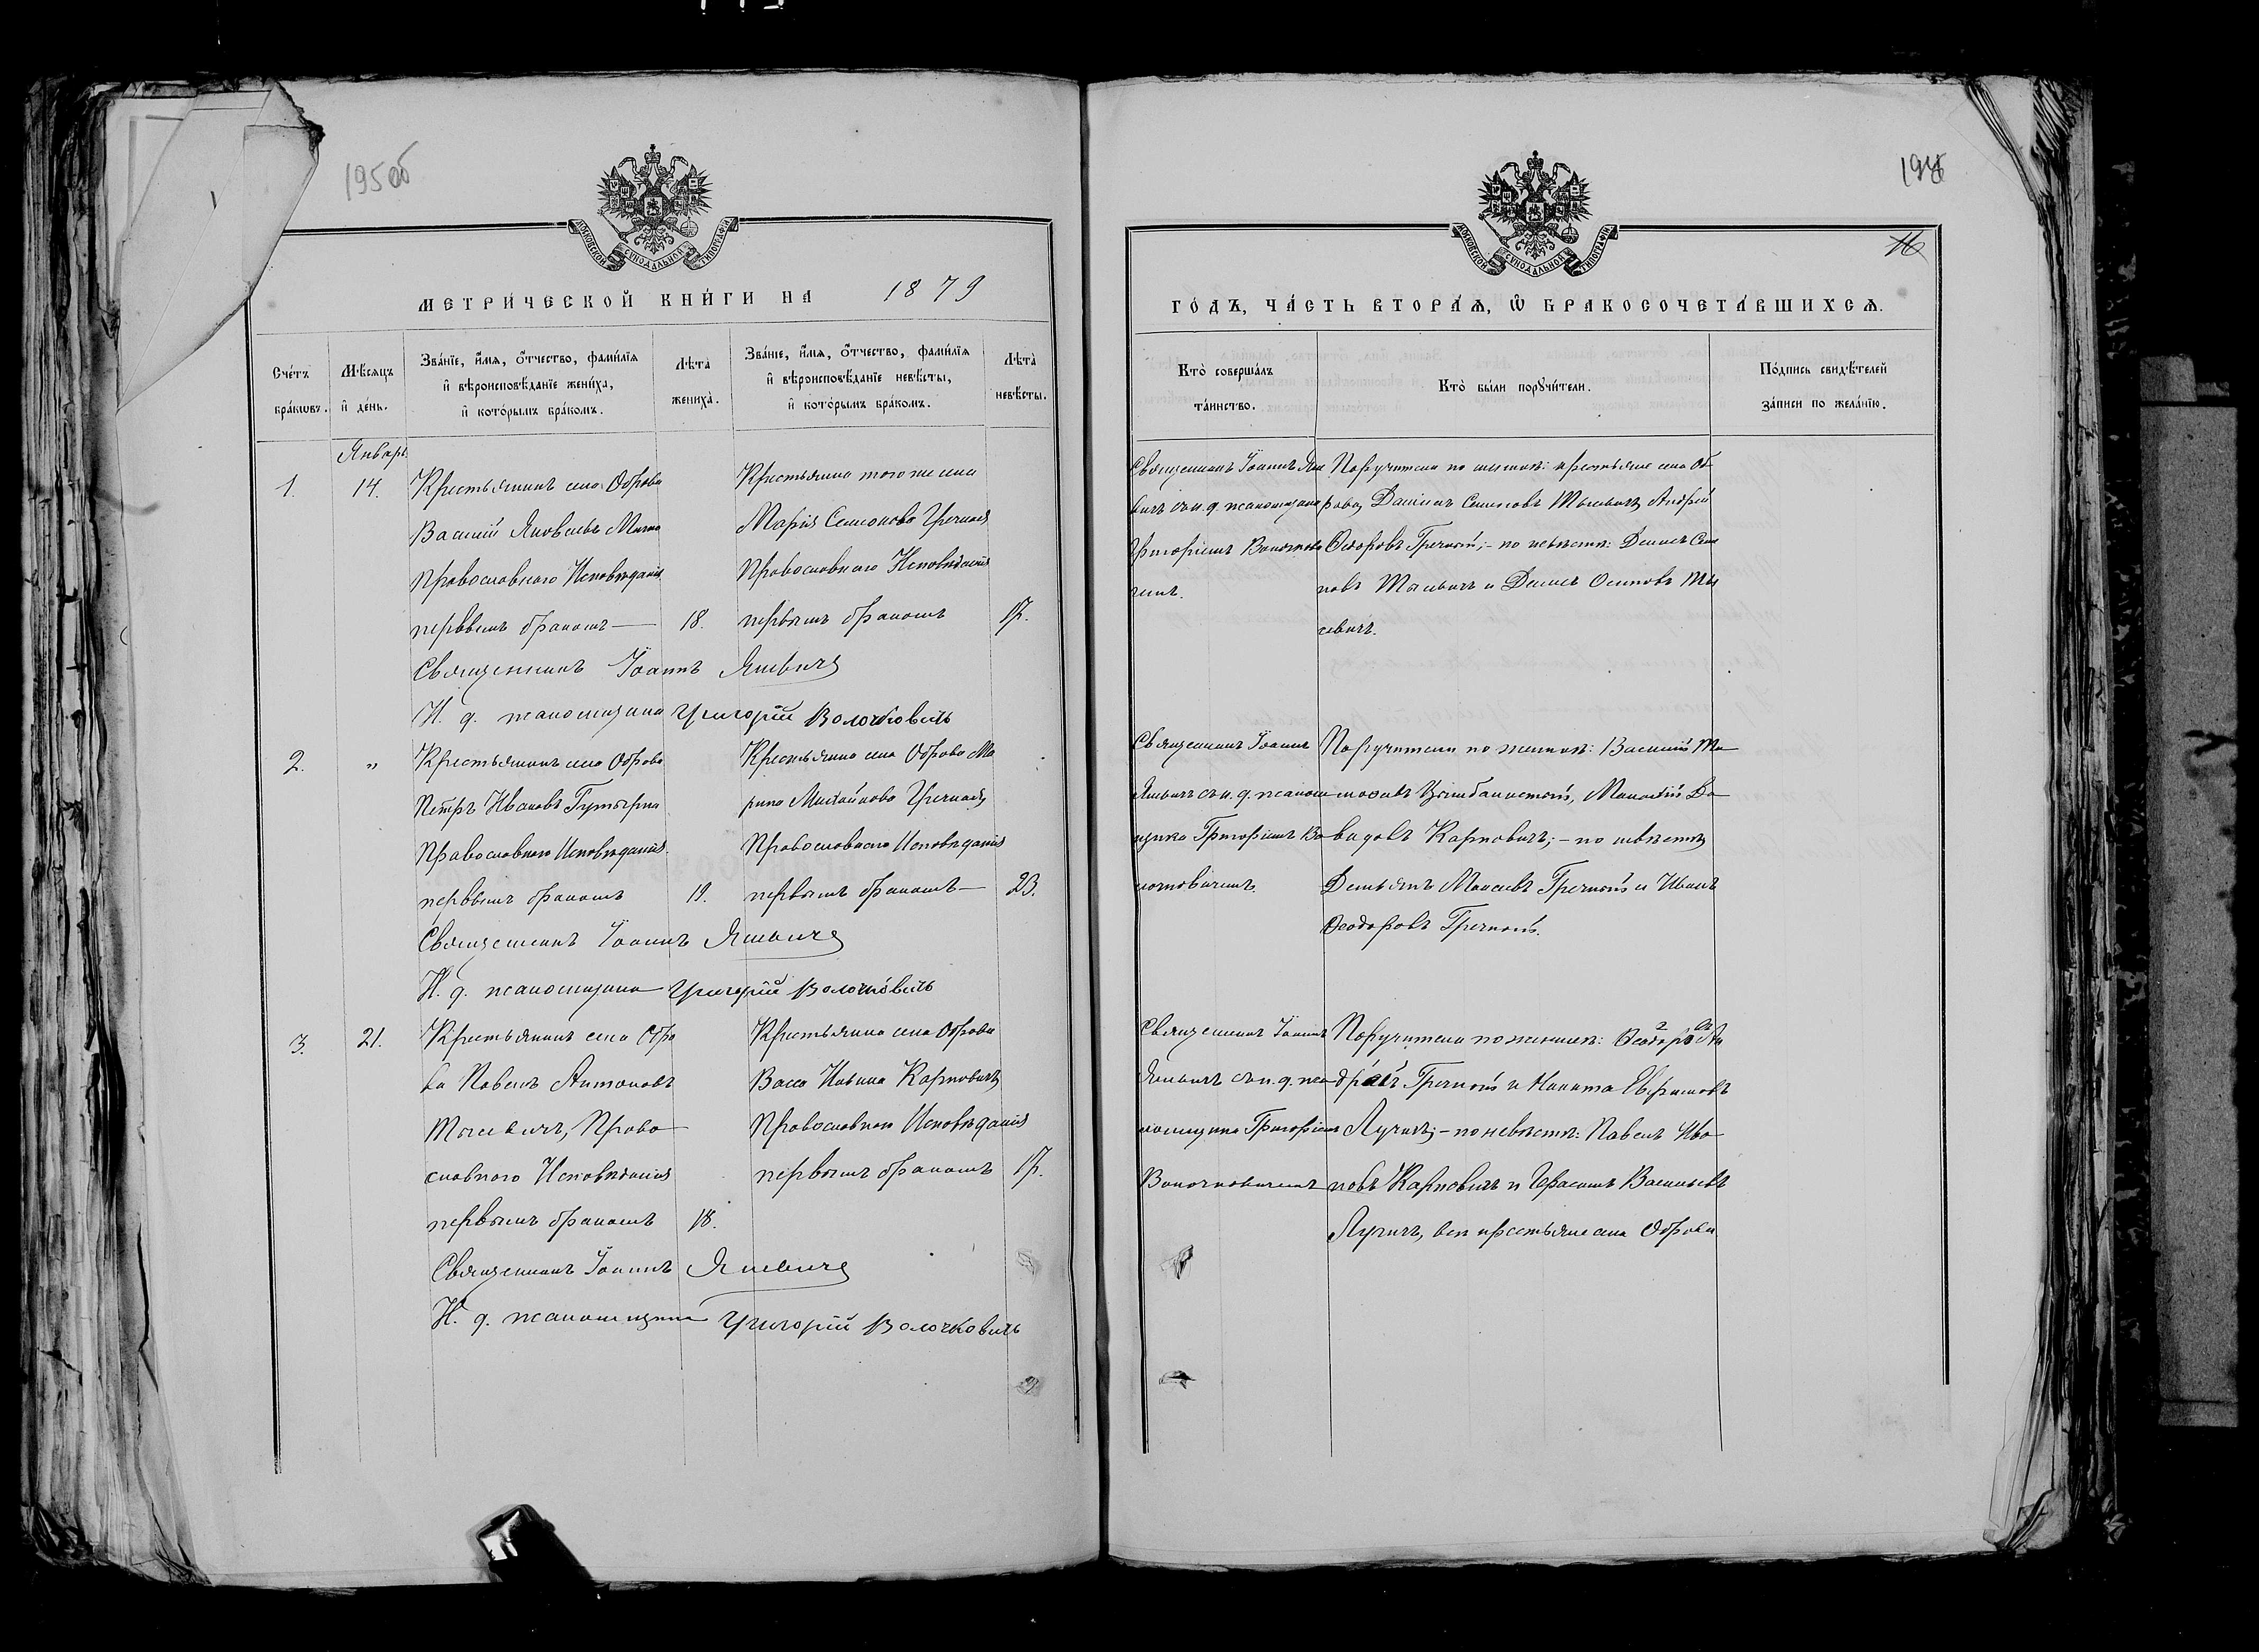 195об
МОСКОВСКОЙ СѴНОДАЛЬНОЙ ТИПОГРАФІИ
МЕТРИ́ЧЕСКОЙ КНИ́ГИ НА 1879
Сче́тъ бра́кѡвъ.
Мѣ́сяцъ и҆ де́нь.
Зва́нїе, и҆́мѧ, ѻ҆́тчество, фами́лїѧ и҆ вѣроисповѣ́данїе жениха̀, и҆ кото́рымъ бра́комъ.
Лѣ́та жениха̀.
Зва́нїе, и҆́мѧ, ѻ҆́тчество, фами́лїѧ и҆ вѣроисповѣ́данїе невѣ́сты, и҆ кото́рымъ бра́комъ.
Лѣ́та невѣ́сты.
Январь
1.
14.
Крестьянинъ села Оброва
Василій Яковлевъ
Православнаго Исповѣданія
первымъ бракомъ—
18.
Крестьянка того же села
Марія Семенова Гречная
Православнаго Исповѣданія
первымъ бракомъ
17.
Священникъ Іоаннъ
И. д. псаломщика Григорій Волочковичъ
2.
"
Крестьянинъ села Оброва
Петръ Ивановъ
Православнаго Исповѣданія
первымъ бракомъ
19.
Крестьянка села Оброва Ма
рина Михайлова Гречная
Православнаго Исповѣданія
первымъ бракомъ—
23.
Священникъ Іоаннъ
И. д. псаломщика Григорій Волочковичъ
3.
21.
Крестьянинъ села Обро
ва Павелъ Антоновъ
Мысевичъ, Право
славнаго Исповѣданія
первымъ бракомъ
18.
Крестьянка села Оброва
Васса Карповичъ
Православнаго Исповѣданія
первымъ бракомъ
17.
Священникъ Іоаннъ
И. д. псаломщика Григорій Волочковичъ
МОСКОВСКОЙ СѴНОДАЛЬНОЙ ТИПОГРАФІИ
16
ГО́ДЪ, ЧА́СТЬ ВТОРА́Ѧ, Ѽ БРАКОСОЧЕТА́ВШИХСѦ.
Кто̀ соверша́лъ та́инство.
Кто̀ бы́ли порꙋчи́тели.
По́дпись свидѣ́телей за́писи по жела́нїю.
Священникъ Іоаннъ
съ и. д. псаломщика
Григоріемъ Волочкови
чемъ.
Поручители по женихѣ: крестьяне села Об
рова, Даніилъ Семеновъ Андрей
Ѳеодоровъ Гречной;— по невѣстѣ:
и Осиповъ Мы
севичъ.
Священникъ Іоаннъ
съ и. д. псалом
щика Григоріемъ Во
лочковичемъ.
Поручители по женихѣ: Василій
Да
видовъ Карповичъ;— по невѣстѣ
Демьянъ Гречной и Иванъ
Ѳеодоровъ Гречной.
Священникъ Іоаннъ
съ и. д. пса
ломщика Григоріемъ
Волочковичемъ
Поручители по женихѣ: Ѳеодоръ Ан
дреевъ Гречной и Никита Ефимовъ
Лучичъ;— по невѣстѣ: Павелъ Ива
новъ Карповичъ и Герасимъ Васильевъ
Лучичъ, всѣ крестьяне села Оброва.